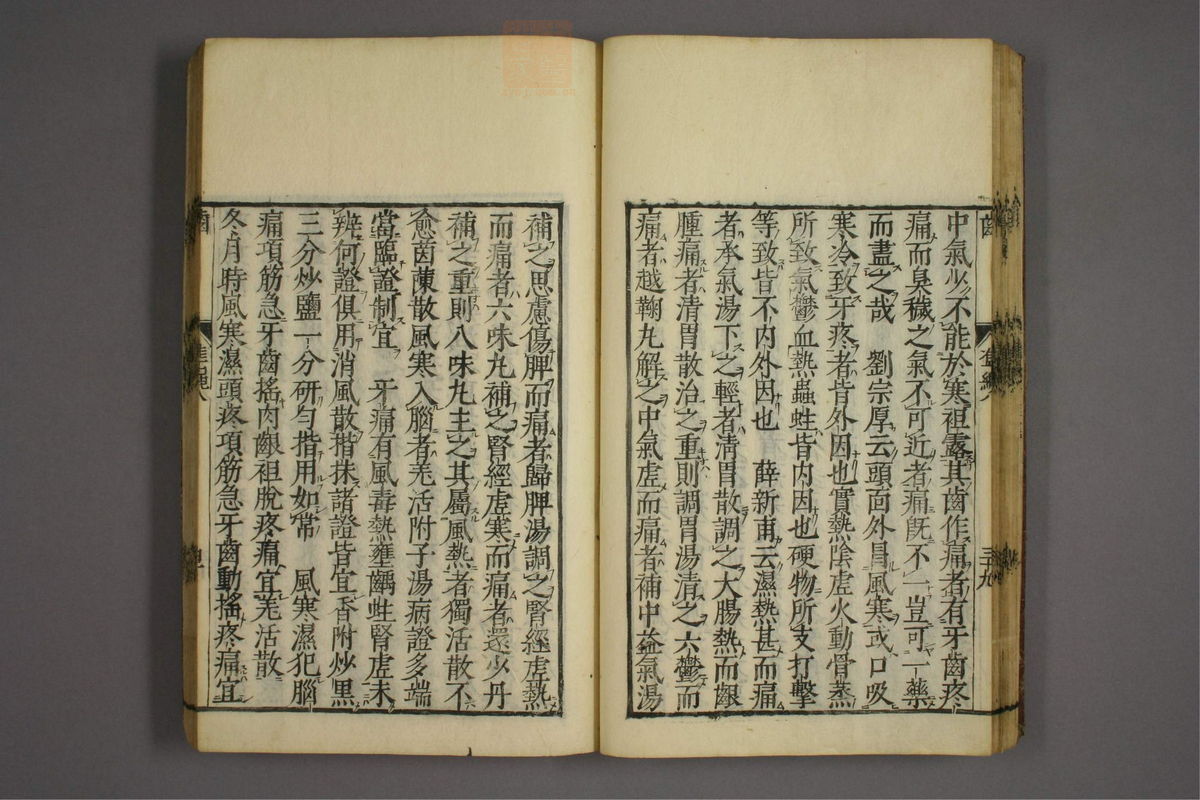 中氣少不能於寒袒露其齒作痛者有牙齒疼
痛而臭穢之氣不可近者痛既不一豈可一藥
而盡之哉　劉宗厚云頭面外冒風寒或口吸
寒冷致牙疼者皆外因也實熱陰虛火動骨蒸
所致氣鬱血熱蟲蛀皆内因也硬物所支打擊
等致皆不内外因也　薛新甫云濕熱甚而痛
者承氣湯下之輕者清胃散調之大腸熱而齦
腫痛者清胃散治之重則調胃湯清之六鬱而
痛者越鞠丸解之中氣虛而痛者補中益氣湯
三十九
補之思慮傷脾而痛者歸脾湯調之腎經虛熱
而痛者六味丸補之腎經虛寒而痛者還少丹
補之重則八味丸主之其屬風熱者獨活散不
愈茵蔯散風寒入腦者羌活附子湯病證多端
當臨證制宜　牙痛有風毒熱壅齲蛀腎虛未
辨何證俱用消風散揩抹諸證皆宜香附炒黑
三分炒鹽一分研勻揩用如常　風寒濕犯腦
痛項筋急牙齒搖肉齦袒脫疼痛宜羌活散
冬月時風寒濕頭疼項筋急牙齒動搖疼痛宜
齒